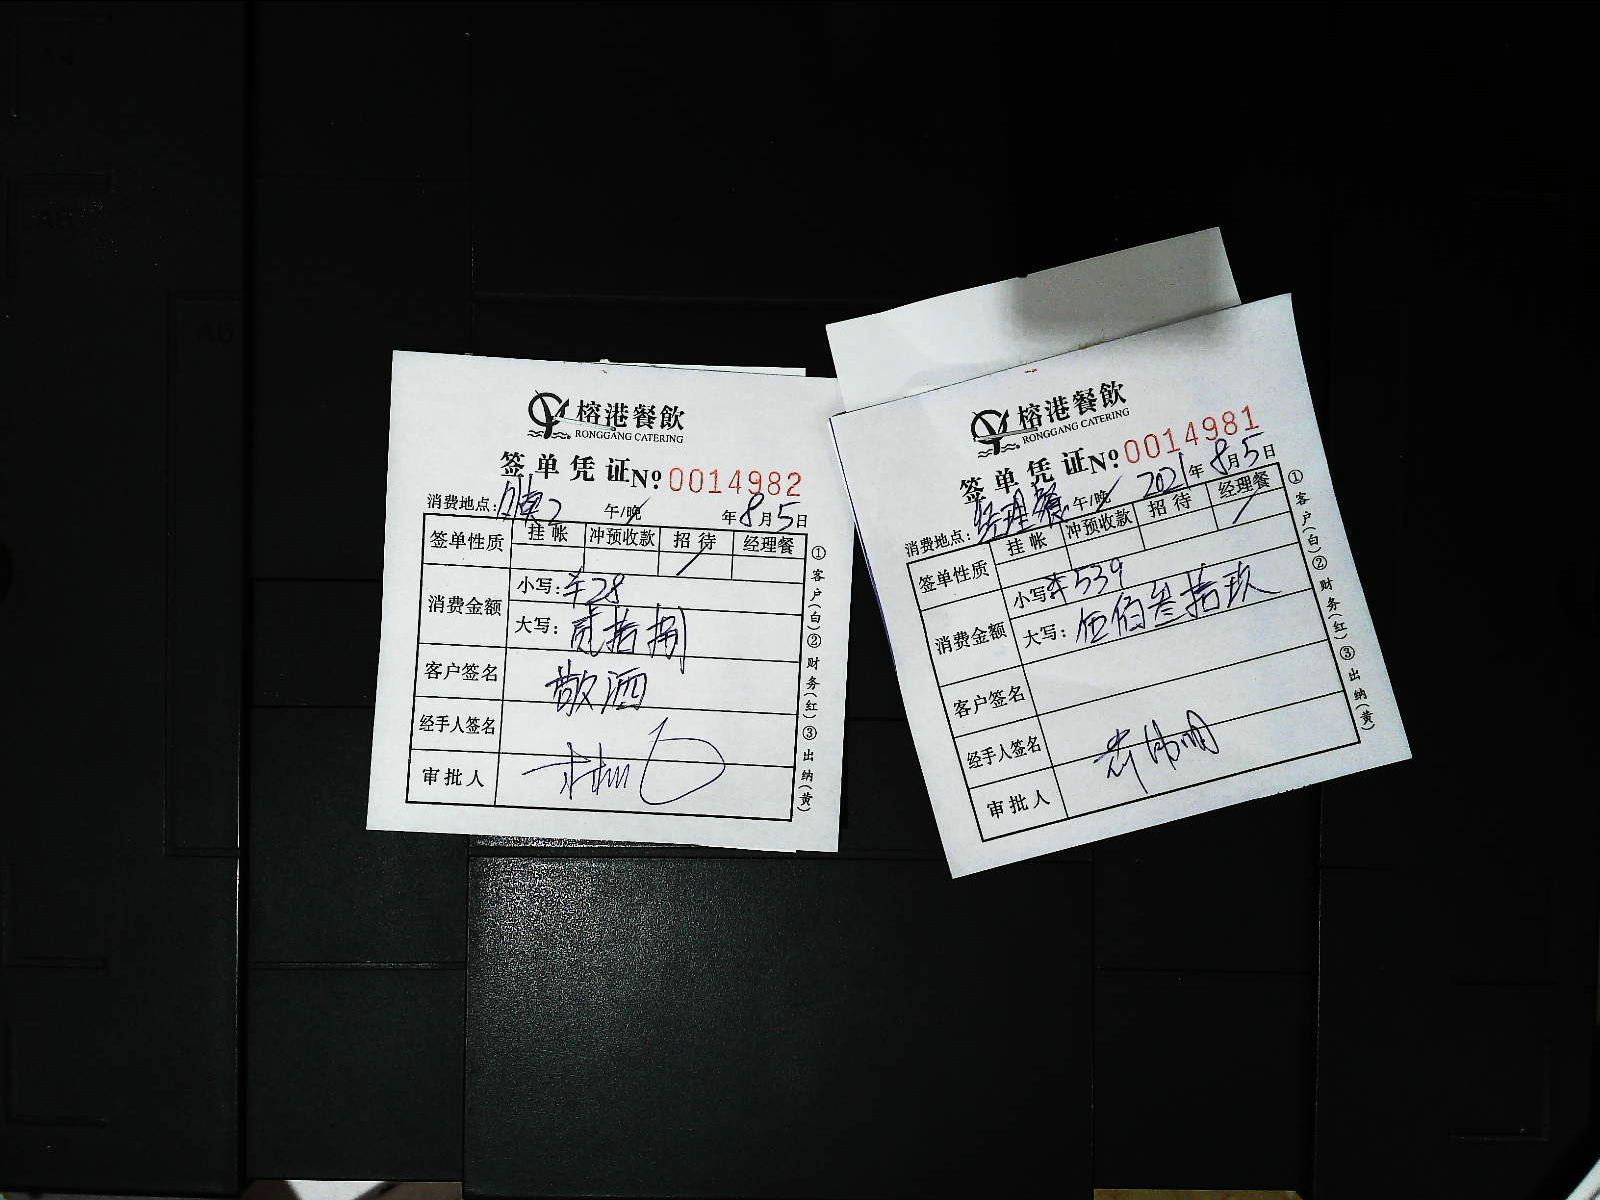 榕港餐飲
RONGGANG CATERING
签单凭证 № 0014982
消费地点: 午/晚 年8月5日
签单性质 挂帐 冲预收款 招待 经理餐
消费金额 小写: ¥28
大写: 贰拾捌
客户签名 敬酒
经手人签名
审批人
①客户(白)②财务(红)③出纳(黄)
榕港餐飲
RONGGANG CATERING
签单凭证 № 0014981
消费地点: 经理餐 午/晚 2021年8月5日
签单性质 挂帐 冲预收款 招待 经理餐
消费金额 小写: ¥539
大写: 伍佰叁拾玖
客户签名
经手人签名
审批人
①客户(白)②财务(红)③出纳(黄)